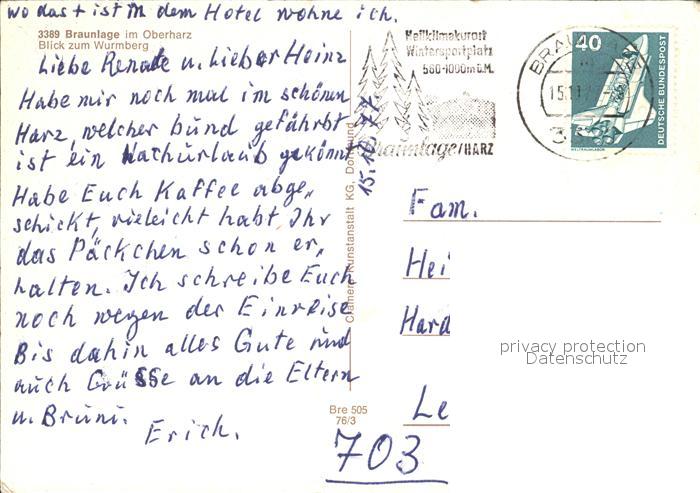 wo das + ist in dem Hotel wohne ich.
3389 Braunlage im Oberharz
Blick zum Wurmberg
Liebe Renate u. Lieber Heinz
Habe mir noch mal im schönen
Harz, welcher bund gefährbt
ist ein Nachurlaub gekönnt
Habe Euch Kaffee abge„
schickt, vieleicht habt Ihr
das Päckchen schon er„
halten. Ich schreibe Euch
noch wegen der Einreise
Bis dahin alles Gute und
auch Grüsse an die Eltern
u. Bruni.
Erich.
15.10.77.
Cramers Kunstanstalt KG, Dortmund
Bre 505
76/3
Heilklimakurort
Wintersportplatz
560-1000m ü.M.
Braunlage/HARZ
BRAU
15.10.
40
DEUTSCHE BUNDESPOST
WELTRAUMLABOR
Fam.
Hei
Hard
Le
703
privacy protection
Datenschutz